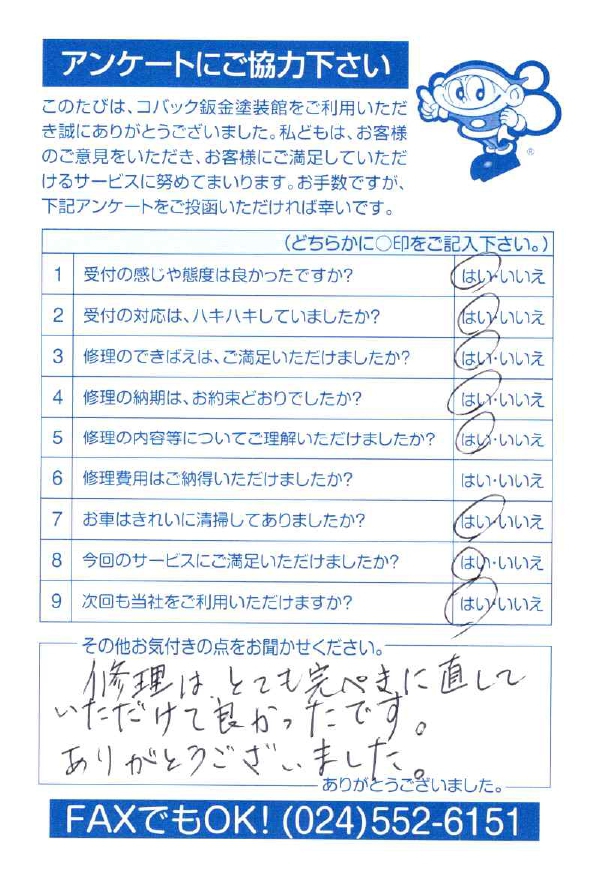 アンケートにご協力下さい
このたびは、コバック鈑金塗装館をご利用いただ
き誠にありがとうございました。私どもは、お客様
のご意見をいただき、お客様にご満足していただ
けるサービスに努めてまいります。お手数ですが、
下記アンケートをご投函いただければ幸いです。
®
(どちらかに○印をご記入下さい。)
1 受付の感じや態度は良かったですか? はい・いいえ
2 受付の対応は、ハキハキしていましたか? はい・いいえ
3 修理のできばえは、ご満足いただけましたか? はい・いいえ
4 修理の納期は、お約束どおりでしたか? はい・いいえ
5 修理の内容等についてご理解いただけましたか? はい・いいえ
6 修理費用はご納得いただけましたか? はい・いいえ
7 お車はきれいに清掃してありましたか? はい・いいえ
8 今回のサービスにご満足いただけましたか? はい・いいえ
9 次回も当社をご利用いただけますか? はい・いいえ
その他お気付きの点をお聞かせください。
修理は、とても完ぺきに直して
いただけて良かったです。
ありがとうございました。
ありがとうございました。
FAXでもOK! (024)552-6151